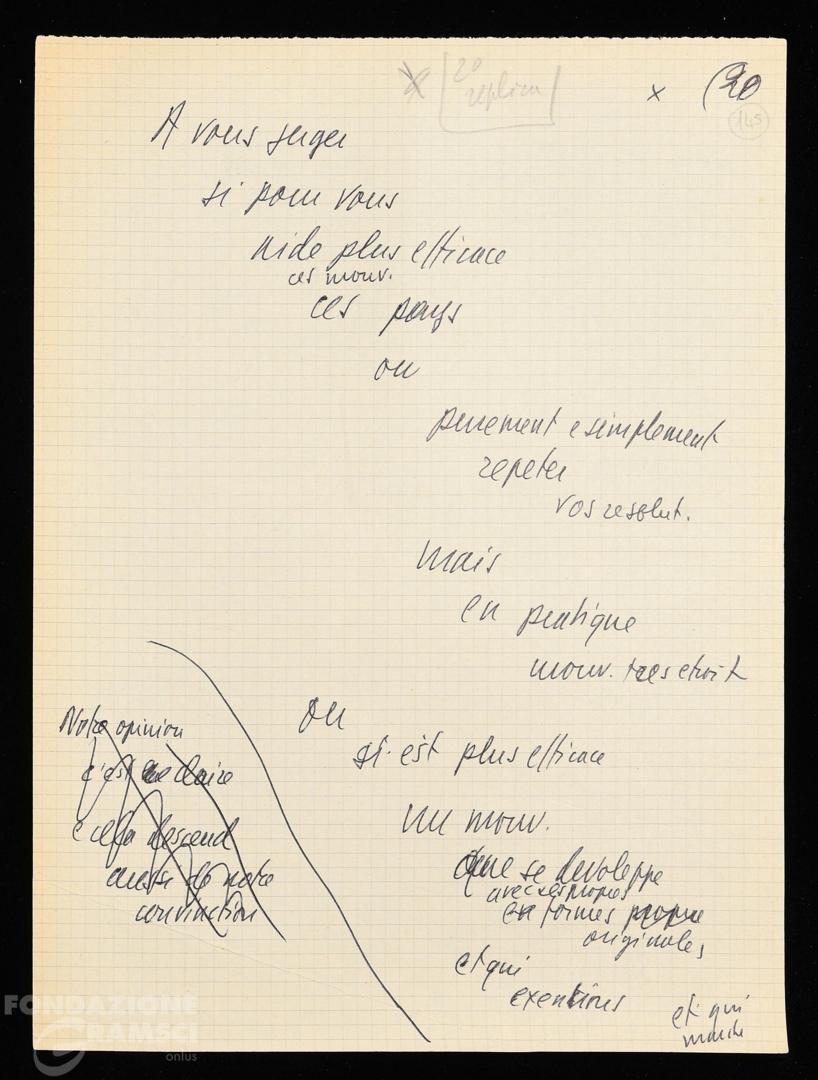 20
replica
x (20
145
A vous juger
si pour vous
aide plus efficace
ces mouv.
ces pays
ou
purement e simplement
repeter
vos resolut.
mais
en pratique
mouv. tres etroit
ou
si est plus efficace
un mouv.
que se devoleppe
avec ses propres
formes propre
originales
et qui
et qui
marche
Notre opinion
c'est claire
e cela descend
aussi de notre
convinction
FONDAZIONE
GRAMSCI
onlus